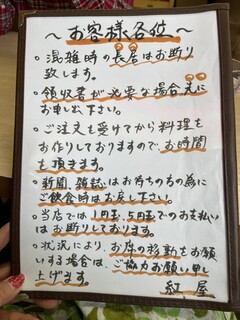 ～お客様各位～
・混雑時の長居はお断り
致します。
・領収書が必要な場合先に
お申し出下さい。
・ご注文を受けてから料理を
お作りしておりますので、お時間
を頂きます。
・新聞、雑誌はお待ちの方の為に
ご飲食時はお戻し下さい。
・当店では1円玉、5円玉でのお支払い
はお断りしております。
・状況により、お席の移動をお願
いする場合は、ご協力お願い申し
上げます。
紅屋